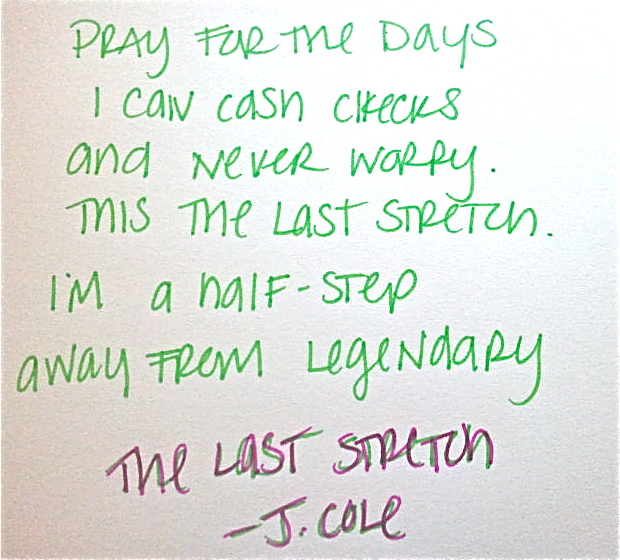 PRAY FOR THE DAYS
I CAN CASH CHECKS
AND NEVER WORRY.
THIS THE LAST STRETCH.
I'M A HALF-STEP
AWAY FROM LEGENDARY
THE LAST STRETCH
-J. COLE